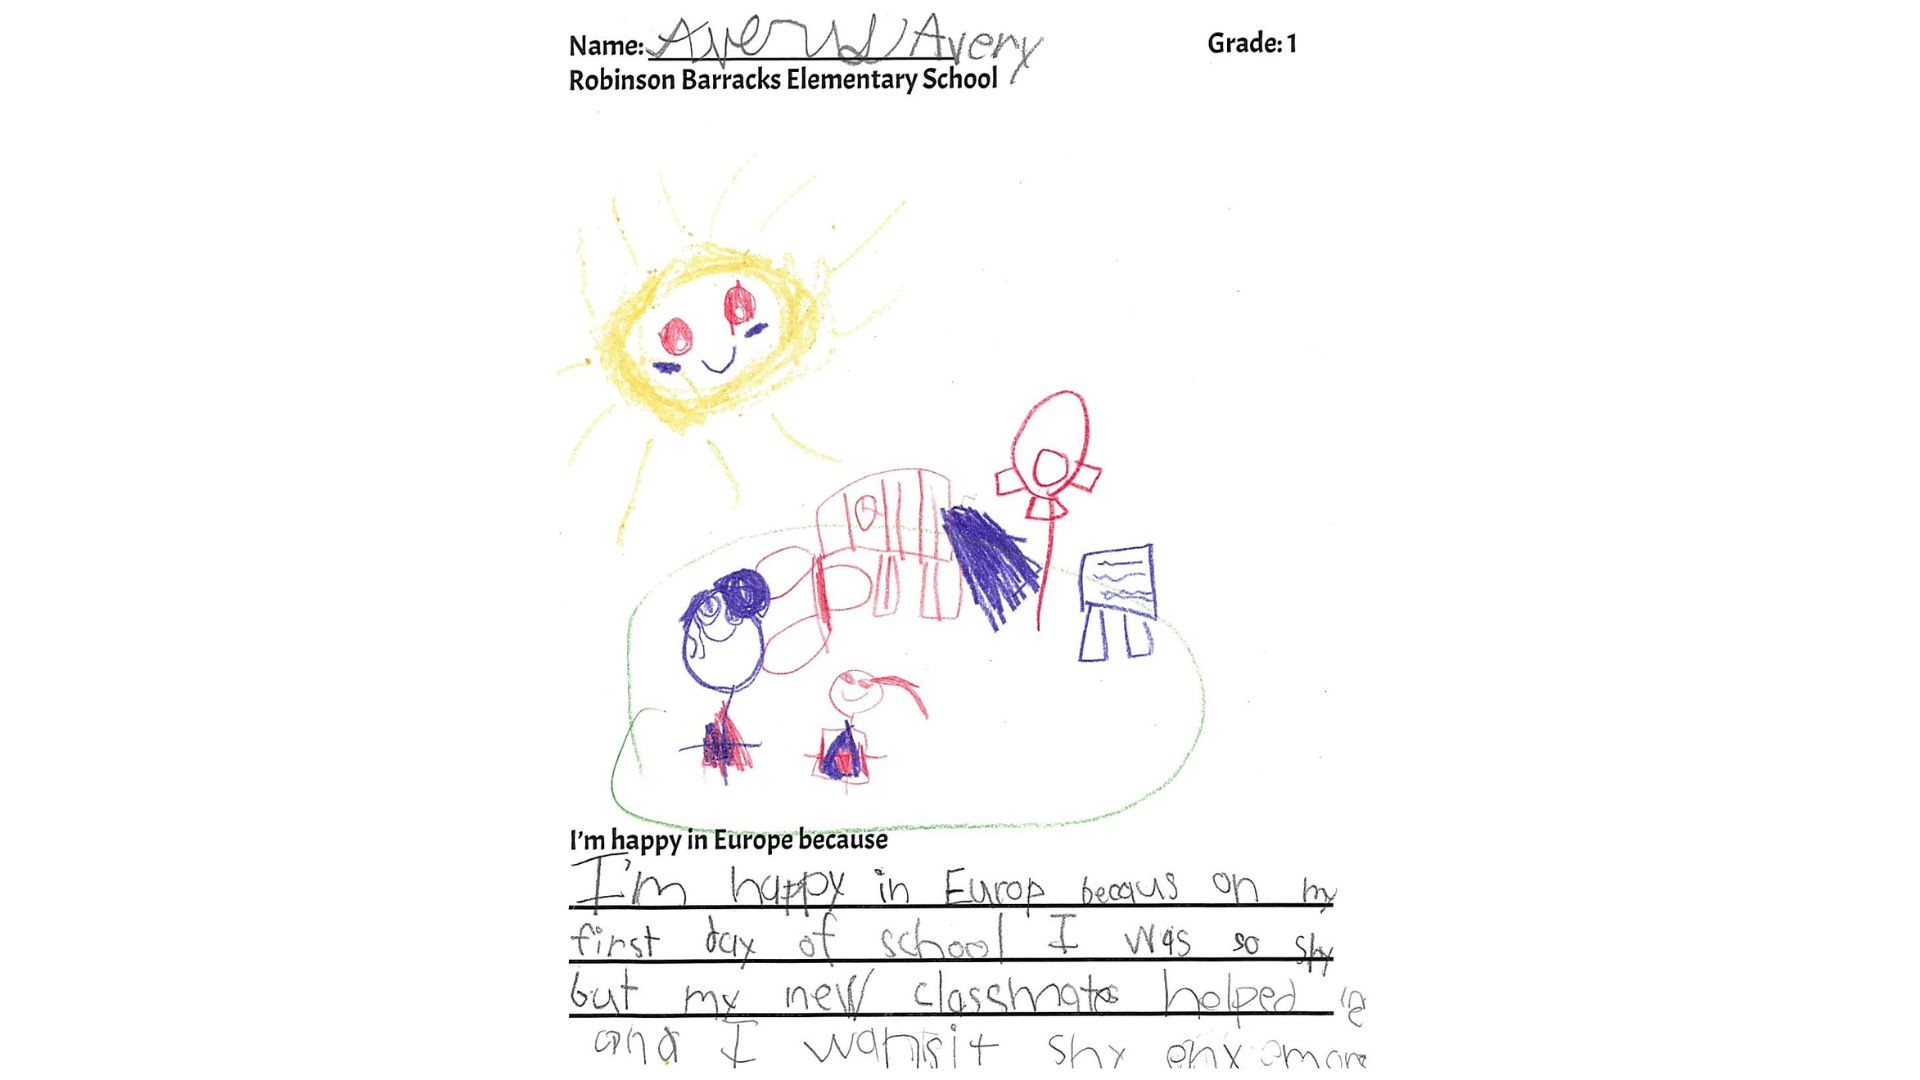 Name: Avery Avery Grade: 1
Robinson Barracks Elementary School
I'm happy in Europe because
I'm happy in Europ becaus on my
first day of school I was so shy
but my new classmate helped
and I shy